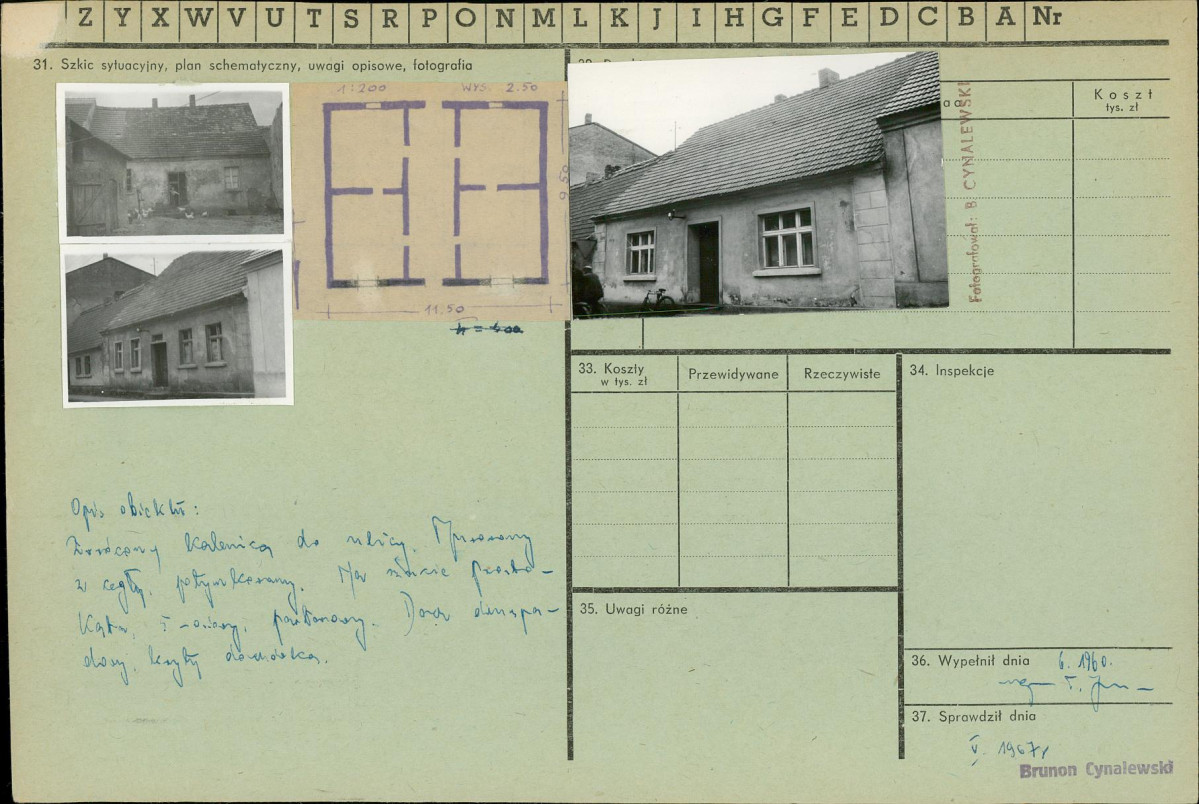 Z Y X W V U T S R P O N M L K J I H G F E D C B A Nr
31. Szkic sytuacyjny, plan schematyczny, uwagi opisowe, fotografia
1:200 WYS. 2.50
9.50
11.50
Opis obiektu:
Zwrócony kalenicą do ulicy. Murowany
z cegły, potynkowany. Na rzucie prosto-
kąta, 5-osiowy, parterowy. Dach dwuspa-
dowy, kryty dachówką.
Koszt
tys. zł
Fotografował: B. CYNALEWSKI
33. Koszty
w tys. zł
Przewidywane
Rzeczywiste
34. Inspekcje
35. Uwagi różne
36. Wypełnił dnia 6. 1960.
37. Sprawdził dnia
V. 1967r
Brunon Cynalewski